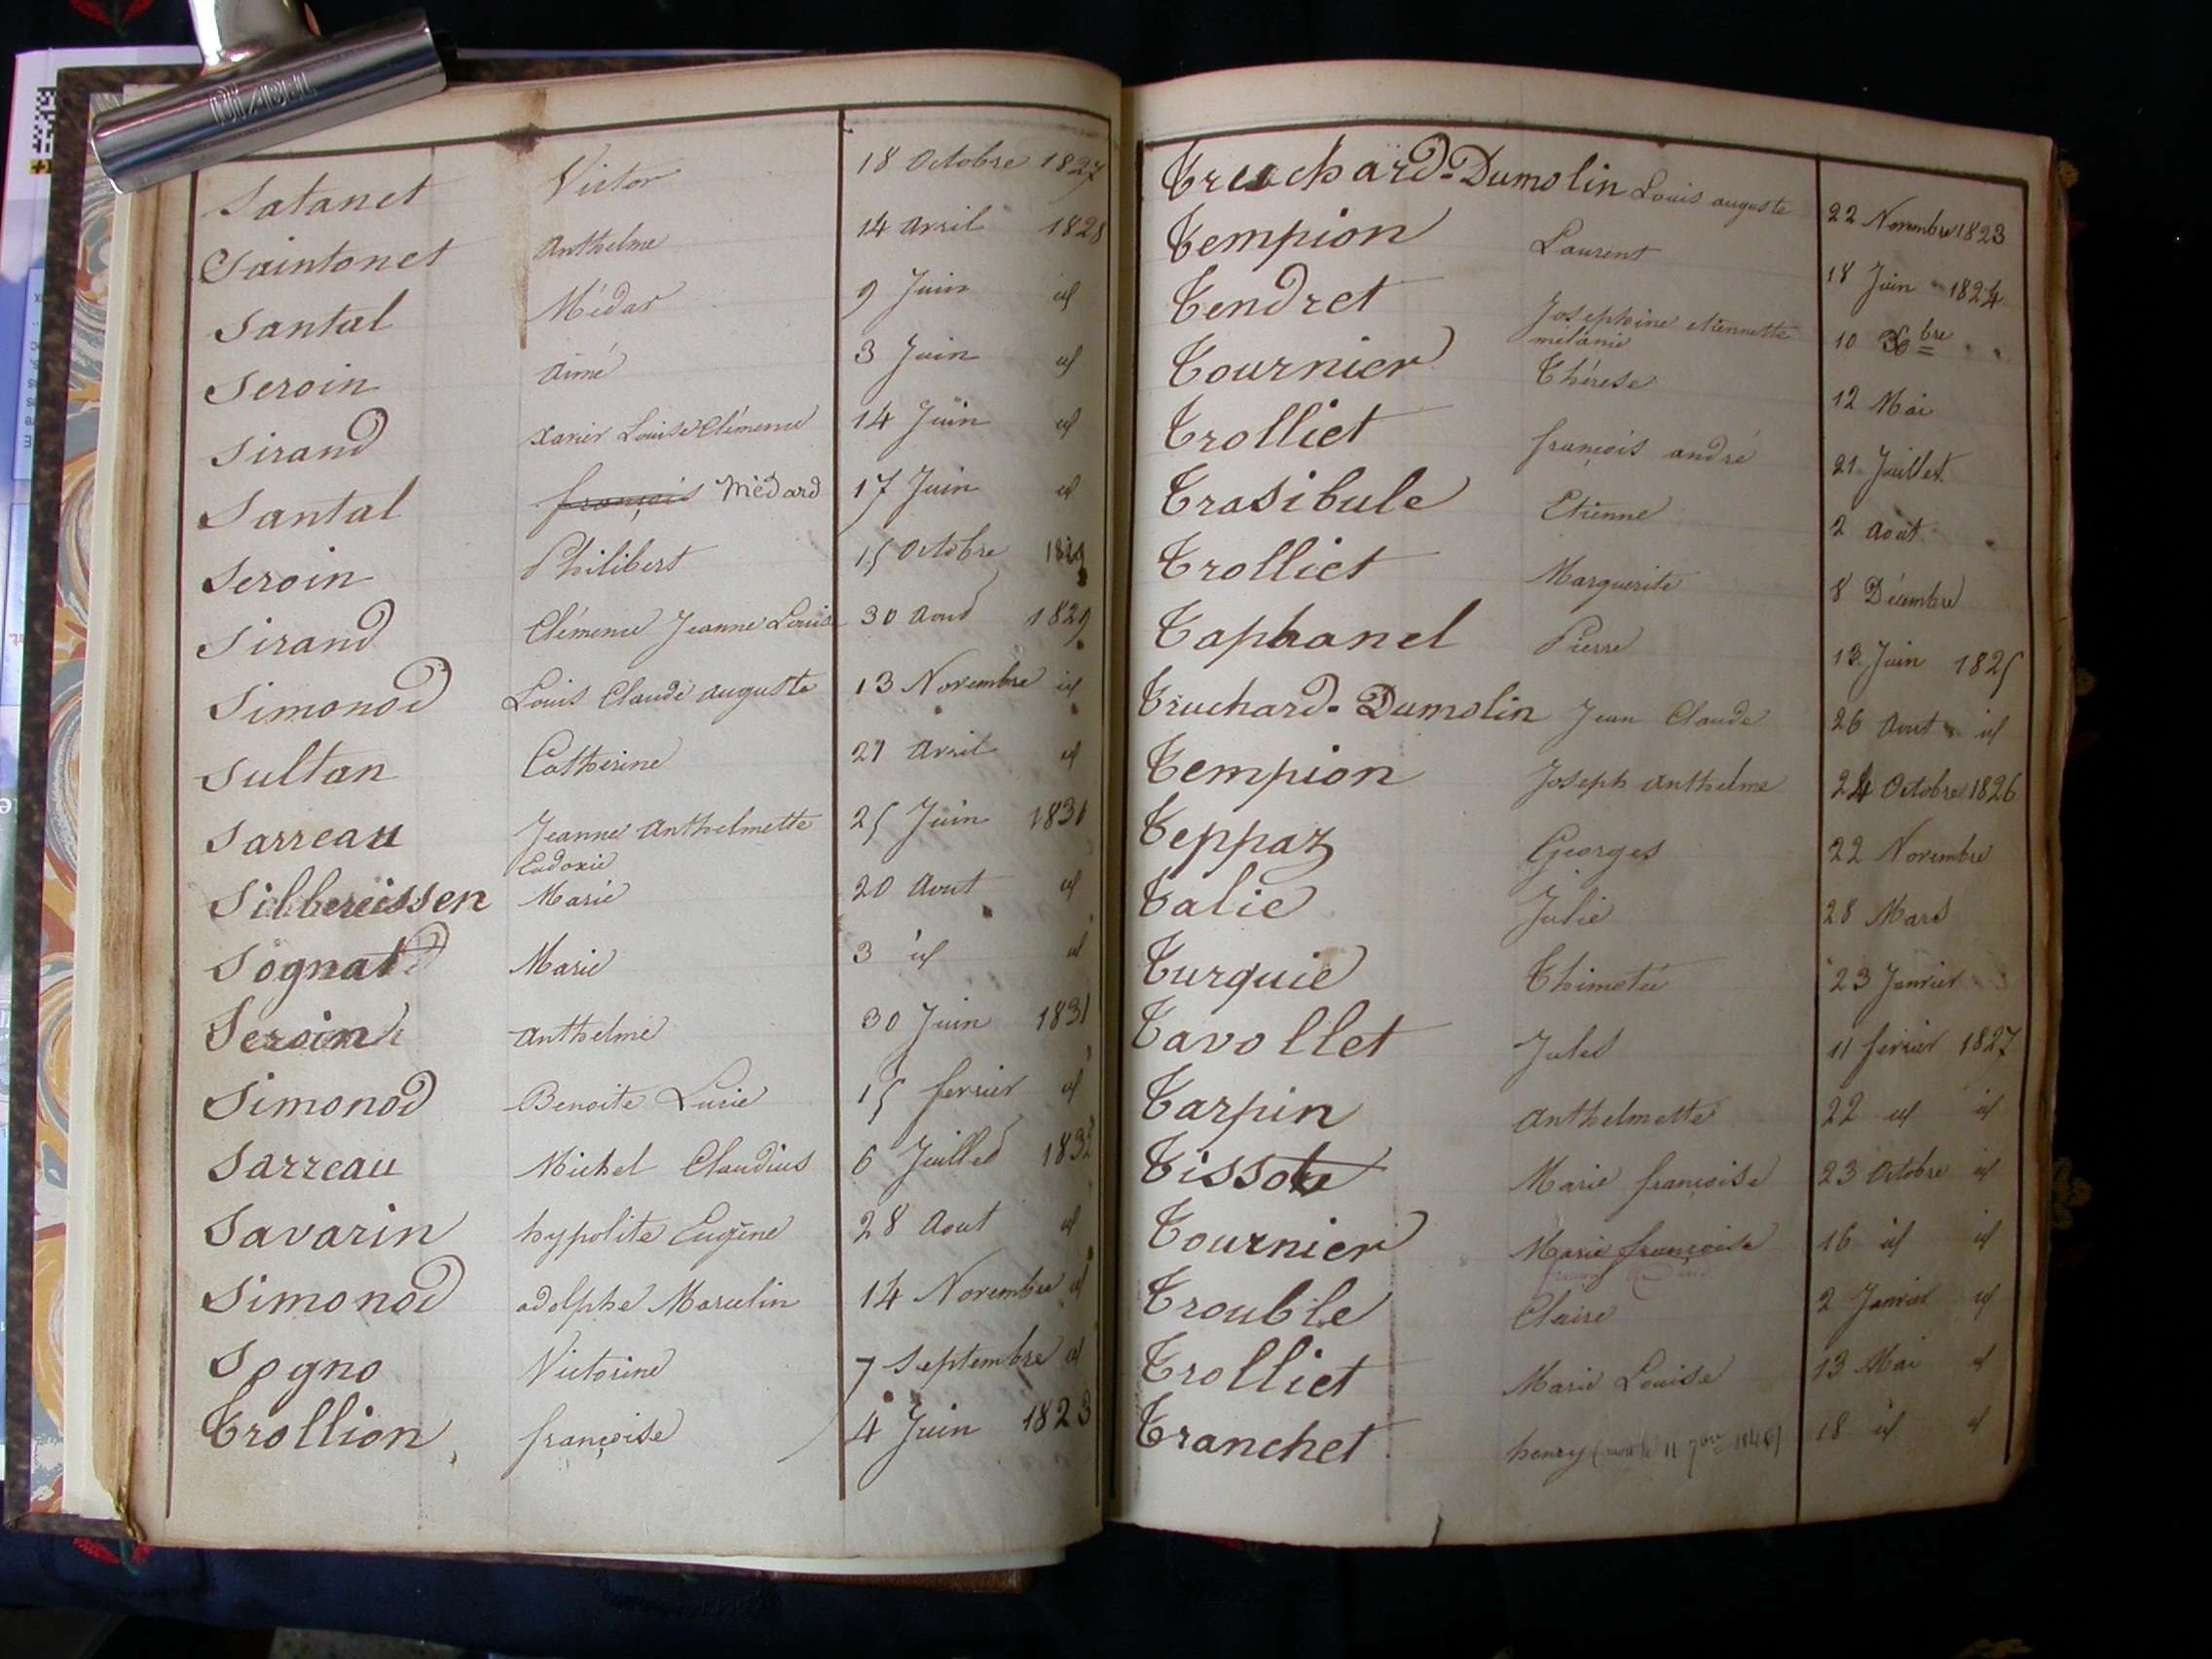 DIABEL
Satanet Victor 18 Octobre 1827
Saintonet anthelme 14 avril 1828
Santal Médar 9 Juin id
Seroin aimé 3 Juin id
Sirand xavier Louise Clémence 14 Juin id
Santal françois Médard 17 Juin id
Seroin Philibert 15 Octobre 1829
Sirand Clémence Jeanne Louise 30 Aoud 1829
Simonod Louis Claude auguste 13 Novembre id
Sultan Catherine 27 avril id
Sarreau Jeanne Anthelmette 25 Juin 1830
Eudoxie
Silbereissen Marie 20 Aout id
Sognat Marie 3 id id
Seroin anthelme 30 Juin 1831
Simonod Benoite Lucie 15 fevrier id
Sarreau Michel Claudius 6 Juilled 1832
Savarin hypolite Eugène 28 Aout id
Simonod adolphe Marcelin 14 Novembre id
Sogno Victorine 7 Septembre id
Trollion françoise 4 Juin 1823
Truchard-Dumolin Louis auguste 22 Novembre 1823
Tempion Laurent 18 Juin 1824
Tendret Josephine etiennette
mélanie 10 bre
Tournier Thérese 12 Mai
Trolliet françois andré 21 Juillet
Trasibule Etienne 2 Août
Trolliet Marguerite 8 Décembre
Taphanel Pierre 13 Juin 1825
Truchard-Dumolin Jean Claude 26 Aout id
Tempion Joseph Anthelme 24 Octobre 1826
Teppaz Georges 22 Novembre
Talie Julie 28 Mars
Turquie Thimotée 23 Janvier
Tavollet Jules 11 fevrier 1827
Tarpin anthelmette 22 id id
Tissot Marie françoise 23 Octobre id
Tournier Marie françoise 16 id id
Trouble Claire 2 Janvier id
Trolliet Marie Louise 13 Mai id
Tranchet henry (mort le 11 7bre 1846) 18 id id